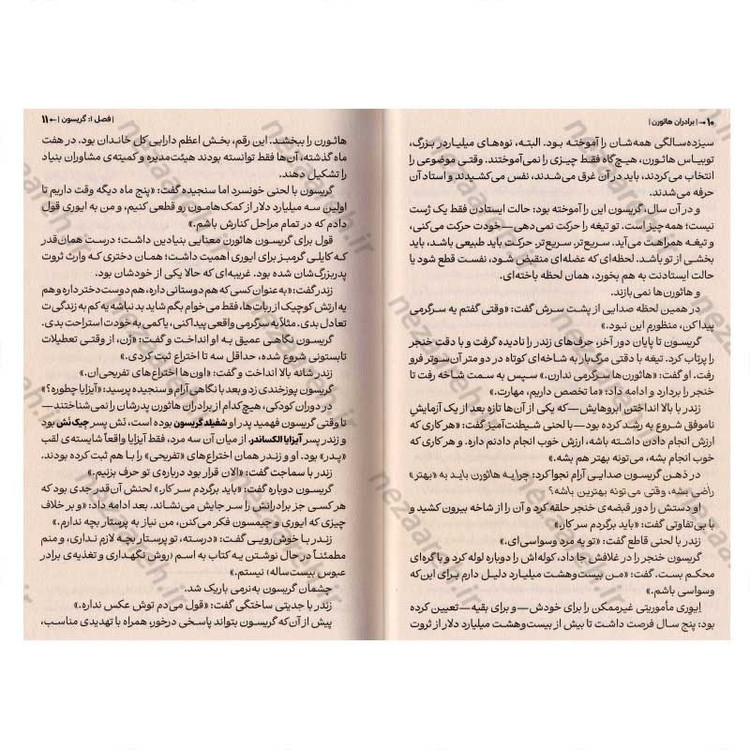 ۱۰ ← | برادران هاثورن |
سیزده‌سالگی همه‌شان را آموخته بود. البته، نوه‌های میلیاردر بزرگ،
توبیاس هاثورن، هیچ‌گاه فقط چیزی را نمی‌آموختند. وقتی موضوعی را
انتخاب می‌کردند، باید در آن غرق می‌شدند، نفس می‌کشیدند و استاد آن
حرفه می‌شدند.
و در آن سال، گریسون این را آموخته بود: حالت ایستادن فقط یک ژست
نیست؛ همه‌چیز است. تو تیغه را حرکت نمی‌دهی—خودت حرکت می‌کنی،
و تیغه همراهت می‌آید. سریع‌تر، سریع‌تر. حرکت باید طبیعی باشد، باید
بخشی از تو باشد. لحظه‌ای که عضله‌ای منقبض شود، نفست قطع شود یا
حالت ایستادنت به هم بخورد، همان لحظه باخته‌ای.
و هاثورن‌ها نمی‌بازند.
در همین لحظه صدایی از پشت سرش گفت: «وقتی گفتم یه سرگرمی
پیدا کن، منظورم این نبود.»
گریسون تا پایان دور آخر، حرف‌های زندر را نادیده گرفت و با دقت خنجر
را پرتاب کرد. تیغه با دقتی مرگ‌بار به شاخه‌ای کوتاه در دو متر آن‌سوتر فرو
رفت. او گفت: «هاثورن‌ها سرگرمی ندارن.» سپس به سمت شاخه رفت تا
خنجر را بردارد و ادامه داد: «ما تخصص داریم، مهارت.»
زندر با بالا انداختن ابروهایش—که یکی از آن‌ها تازه بعد از یک آزمایش
ناموفق شروع به رشد کرده بود—با لحنی شیطنت‌آمیز گفت: «هر کاری که
ارزش انجام دادن داشته باشه، ارزش خوب انجام دادنم داره. و هر کاری که
خوب انجام بشه، می‌تونه بهتر هم بشه.»
در ذهن گریسون صدایی آرام نجوا کرد: چرا یه هاثورن باید به «بهتر»
راضی بشه، وقتی می‌تونه بهترین باشه؟
او دستش را دور قبضه‌ی خنجر حلقه کرد و آن را از شاخه بیرون کشید و
با بی‌تفاوتی گفت: «باید برگردم سر کار.»
زندر با لحنی قاطع گفت: «تو یه مرد وسواسی‌ای.»
گریسون خنجر را در غلافش جا داد، کوله‌اش را دوباره لوله کرد و با گره‌ای
محکم بست. گفت: «من بیست‌وهشت میلیارد دلیل دارم برای این‌که
وسواسی باشم.»
ایوری مأموریتی غیرممکن را برای خودش—و برای بقیه—تعیین کرده
بود: پنج سال فرصت داشت تا بیش از بیست‌وهشت میلیارد دلار از ثروت
| فصل ۱: گریسون | → ۱۱
هاثورن را ببخشد. این رقم، بخش اعظم دارایی کل خاندان بود. در هفت
ماه گذشته، آن‌ها فقط توانسته بودند هیئت‌مدیره و کمیته‌ی مشاوران بنیاد
را تشکیل دهند.
گریسون با لحنی خونسرد اما سنجیده گفت: «پنج ماه دیگه وقت داریم تا
اولین سه میلیارد دلار از کمک‌هامون رو قطعی کنیم، و من به ایوری قول
دادم که در تمام مراحل کنارش باشم.»
قول برای گریسون هاثورن معنایی بنیادین داشت؛ درست همان‌قدر
که کایلی گرمبز برای ایوری اهمیت داشت؛ همان دختری که وارث ثروت
پدربزرگشان شده بود. غریبه‌ای که حالا یکی از خودشان بود.
زندر گفت: «به عنوان کسی که هم دوستانی داره، هم دوست‌دختر داره و هم
یه ارتش کوچیک از ربات‌ها، فقط می‌خوام بگم شاید بد نباشه یه کم به زندگی‌ت
تعادل بدی. مثلاً یه سرگرمی واقعی پیدا کنی، یا کمی به خودت استراحت بدی.
گریسون نگاهی عمیق به او انداخت و گفت: «زن، از وقتی تعطیلات
تابستونی شروع شده، حداقل سه تا اختراع ثبت کردی.»
زندر شانه بالا انداخت و گفت: «اون‌ها اختراع‌های تفریحی‌ان.»
گریسون پوزخندی زد و بعد با نگاهی آرام و سنجیده پرسید: «آیزایا چطوره؟»
در دوران کودکی، هیچ‌کدام از برادران هاثورن پدرشان را نمی‌شناختند—
تا وقتی گریسون فهمید پدر او شفیلد گریسون بوده است، نش پسر جیک نش بود
و زندر پسر آیزایا الکساندر. از میان آن سه مرد، فقط آیزایا واقعاً شایسته‌ی لقب
«پدر» بود. او و زندر همان اختراع‌های «تفریحی» را با هم ثبت کرده بودند.
زندر با سماجت گفت: «الان قرار بود درباره‌ی تو حرف بزنیم.»
گریسون دوباره گفت: «باید برگردم سر کار.» لحنش آن‌قدر جدی بود که
هر کسی جز برادرانش را سر جایش می‌نشاند. بعد ادامه داد: «و بر خلاف
چیزی که ایوری و جیمسون فکر می‌کنن، من نیاز به پرستار بچه ندارم.»
زندر با خوش‌رویی گفت: «درسته، تو پرستار بچه لازم نداری، و منم
مطمئناً در حال نوشتن یه کتاب به اسم «روش نگهداری و تغذیه‌ی برادر
عبوس بیست‌ساله» نیستم.»
چشمان گریسون به‌نرمی باریک شد.
زندر با جدیتی ساختگی گفت: «قول می‌دم توش عکس نداره.»
پیش از آن‌که گریسون بتواند پاسخی درخور، همراه با تهدیدی مناسب،